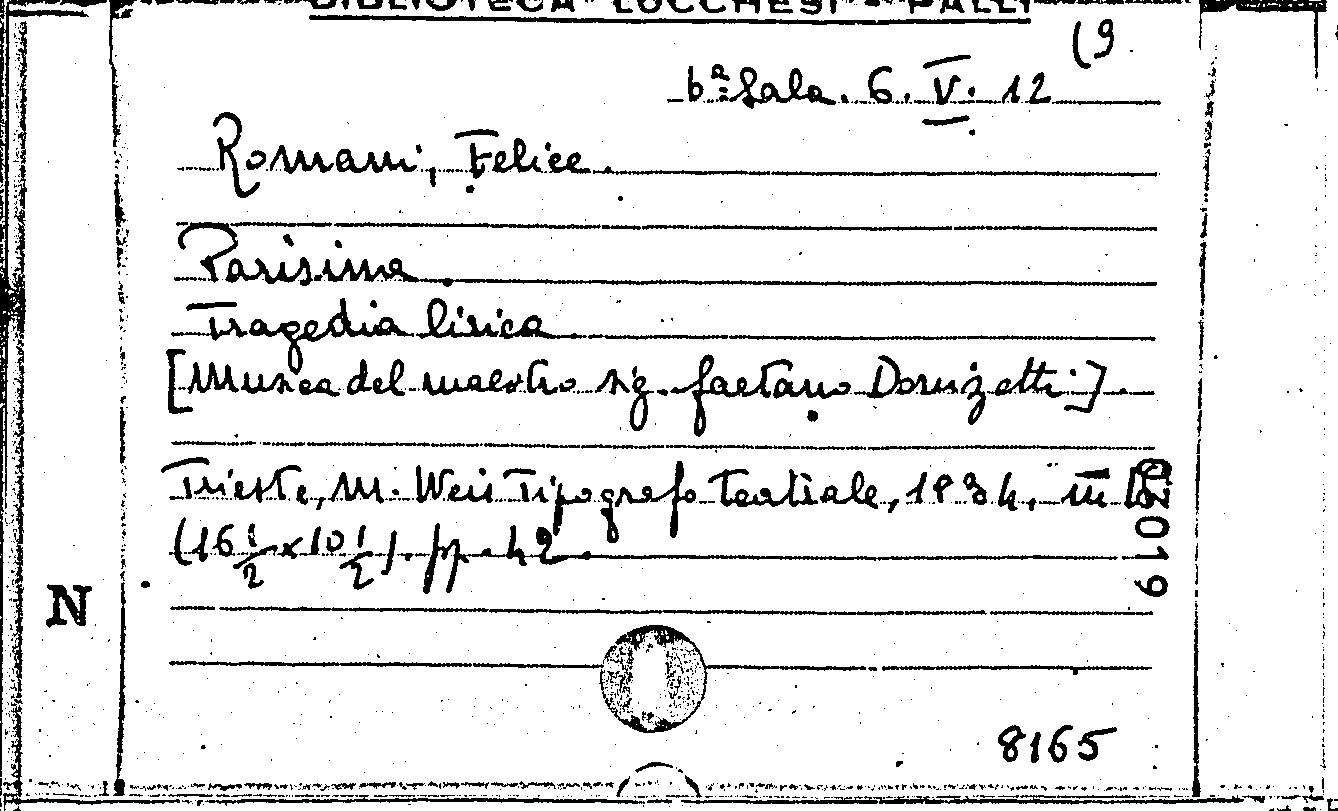 BIBLIOTECA LUCCHESI - PALLI
6ª Sala. 6. V. 12 (9
Romani, Felice.
Parisina.
Tragedia lirica
[Musica del maestro sig. Gaetano Donizetti].
Trieste, M. Weis Tipografo Teatrale, 1834, in
(16 1/2 x 10 1/2). pp. 42.
02019
N
8165